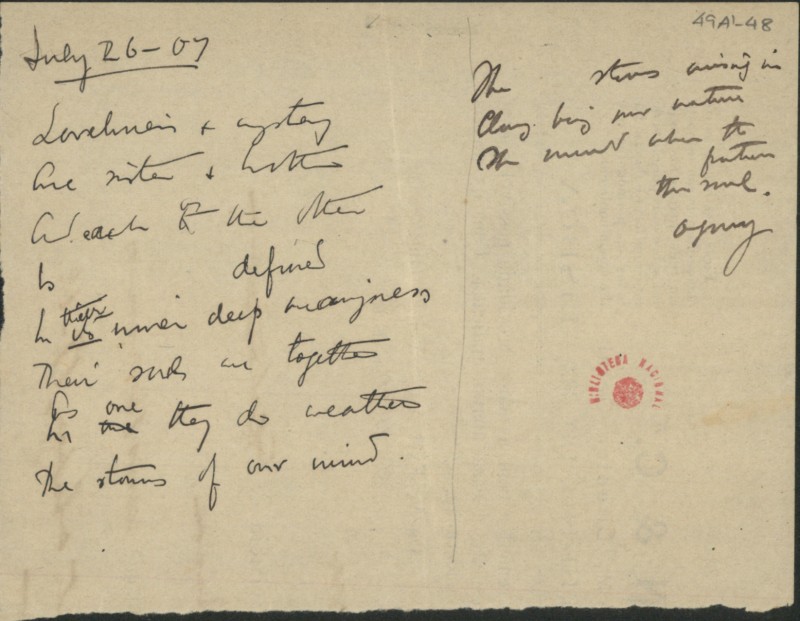 July 26-07
Loveliness & mystery
Are sister & brother
And each to the other
Is defined
In theirs its inner deep meaningness
Their souls are together
As one
In one they do weather
The storms of our mind.
49A1-48
The storms arising in
being our nature
The mind when the
the soul.
agony
BIBLIOTECA NACIONAL